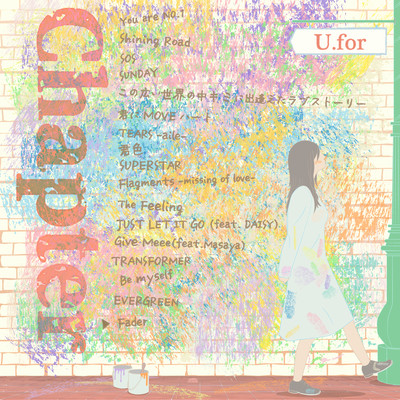 Chapter
U.for
You are NO.1
Shining Road
SOS
SUNDAY
この広い世界の中きみに出逢えたラブストーリー
君にMOVEハート
TEARS -aile-
君色
SUPERSTAR
Flagments -missing of love-
The Feeling
JUST LET IT GO (feat. DAISY)
Give Meee(feat.Masaya)
TRANSFORMER
Be myself
EVERGREEN
Fader